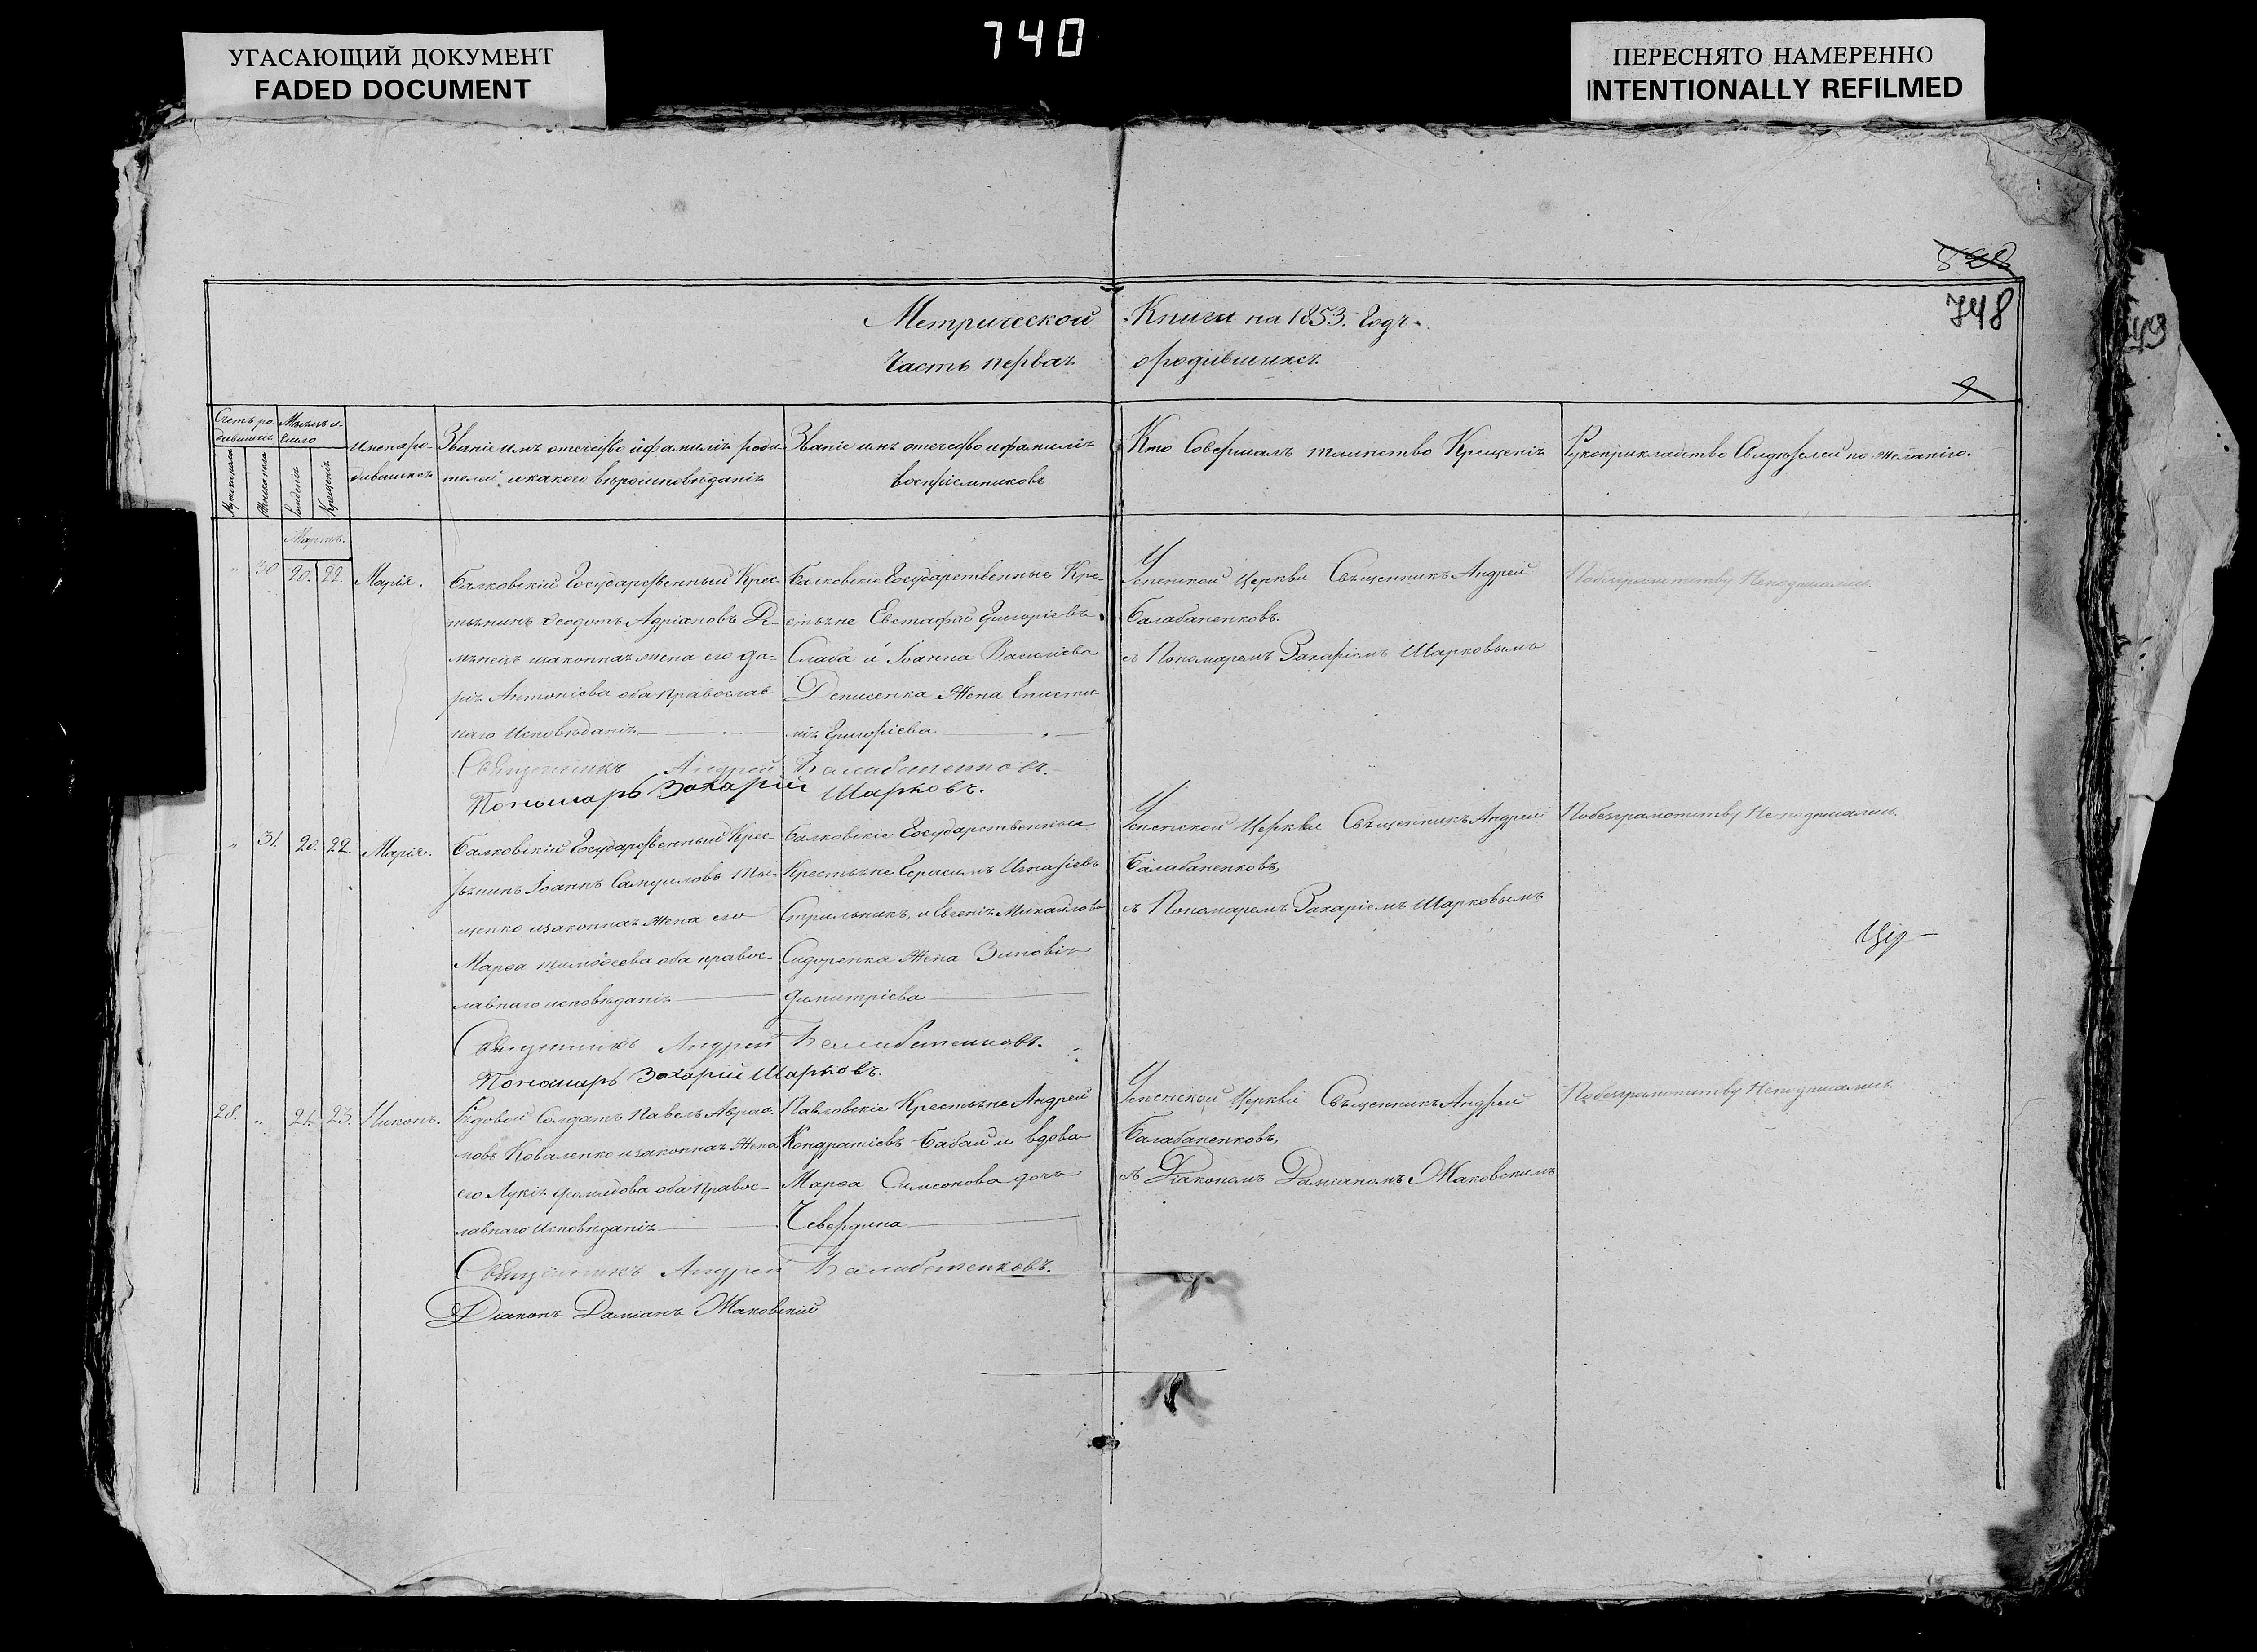 740
УГАСАЮЩИЙ ДОКУМЕНТ
FADED DOCUMENT
ПЕРЕСНЯТО НАМЕРЕННО
INTENTIONALLY REFILMED
748
Метрической Книги на 1853. Годъ.
Часть первая ородившихся
Счетъ ро-
дившихся
Мѣсяцъ и
число
Мужеска пола
Женска пола
Рожденія
Крещенія
Имена ро-
дившихся
Званіе имя отечество и фамилія роди-
телей, и какого вѣроисповѣданія
Званіе имя отечество и фамилія
воспріемниковъ
Кто Совершалъ таинство Крещенія
Рукоприкладство Свидѣтелей по желанію.
Мартъ.
" 30 20. 22. Марія.
Балковскій Государственный Крес-
тьянинъ Ѳеодотъ Адріановъ Де-
изаконная жена его Да-
рія Антоніева оба православ-
наго Исповѣданія
Балковскіе Государственные Кре-
стьяне Евстафій Григоріевъ
Слаба и Іоанна Василіева
Денисенка Жена Еписти-
нія Григоріева
Успенской Церкви Священникъ Андрей
Балабаненковъ.
съ Пономаремъ Захаріемъ Шарковымъ
Побезграмотству Неподписались.
Священникъ Андрей Балабаненковъ.
Пономарь Захарій Шарковъ.
" 31. 20. 22. Марія.
Балковскій Государственный Крес-
тьянинъ Іоаннъ Самуиловъ Ты-
щенко изаконная Жена его
Марѳа тимоѳеева оба правос-
лавнаго исповѣданія
Балковскіе Государственные
Крестьяне Герасимъ Игнатіевъ
Стрильникъ, и Евгенія Михайлова
Сидоренка Жена Зиновія
Димитріева
Успенской Церкви Священникъ Андрей
Балабаненковъ,
съ Пономаремъ Захаріемъ Шарковымъ
Побезграмотству Неподписались.
Священникъ Андрей Балабаненковъ.
Пономарь Захарій Шарковъ.
28. " 21. 23. Никонъ.
Рядовой Солдатъ Павелъ Авраа-
мовъ Коваленко изаконная Жена
его Лукія Демидова оба правос-
лавнаго Исповѣданія
Павловскіе Крестьяне Андрей
Кондратіевъ Бабай и вдова
Марѳа Симеонова дочь
Чевердина
Успенской Церкви Священникъ Андрей
Балабаненковъ,
съ Діакономъ Даміаномъ Маковскимъ
Побезграмотству Неподписались.
Священникъ Андрей Балабаненковъ.
Діаконъ Даміанъ Маковскій